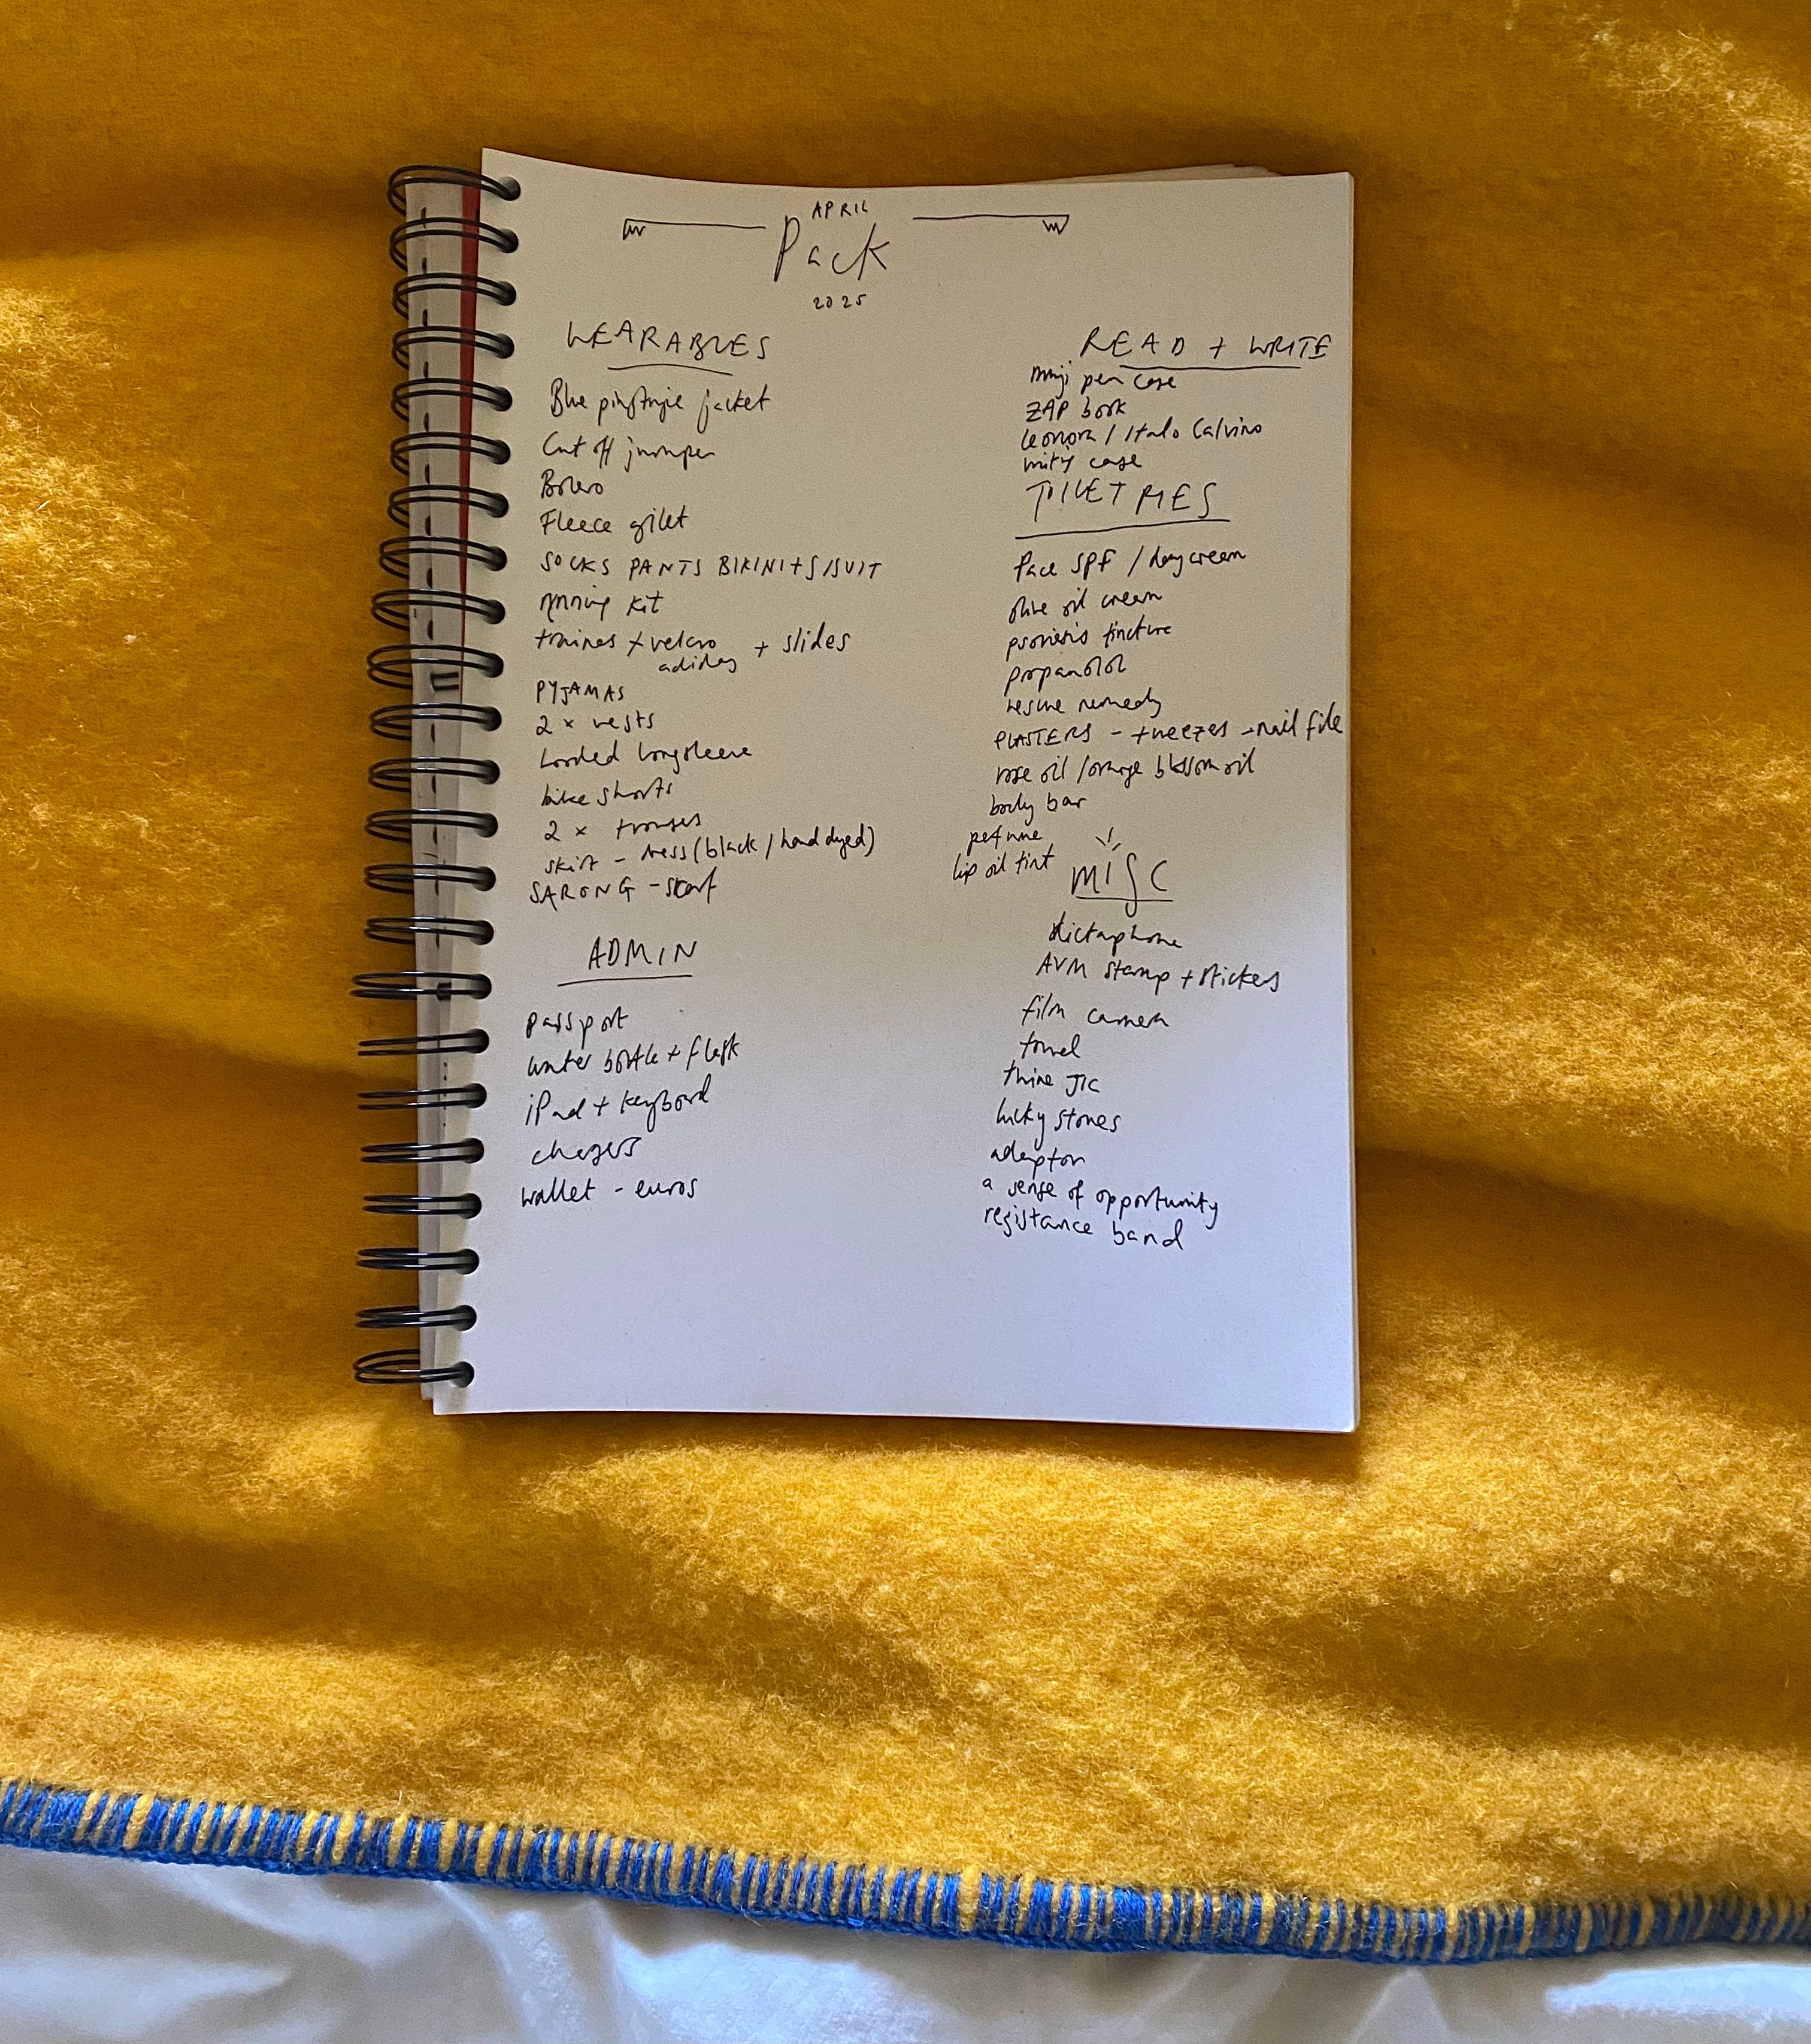 APRIL
Pack
2025
WEARABLES
Blue pinstripe jacket
Cut off jumper
Bolero
Fleece gilet
SOCKS PANTS BIKINI + S/SUIT
running kit
trainers + velcro + slides
adidas
PYJAMAS
2 x vests
hooded longsleeve
bike shorts
2 x trousers
skirt - dress (black / hand dyed)
SARONG - scarf
ADMIN
passport
water bottle + flask
iPad + keyboard
chargers
wallet - euros
READ + WRITE
muji pen case
ZAP book
Leonora / Italo Calvino
case
TOILETRIES
face SPF / day cream
olive oil cream
psoriasis tincture
propanolol
rescue remedy
PLASTERS - tweezers - nail file
rose oil / orange blossom oil
body bar
perfume
lip oil tint
MISC
dictaphone
AVM stamp + stickers
film camera
towel
JIC
lucky stones
adaptor
a sense of opportunity
resistance band